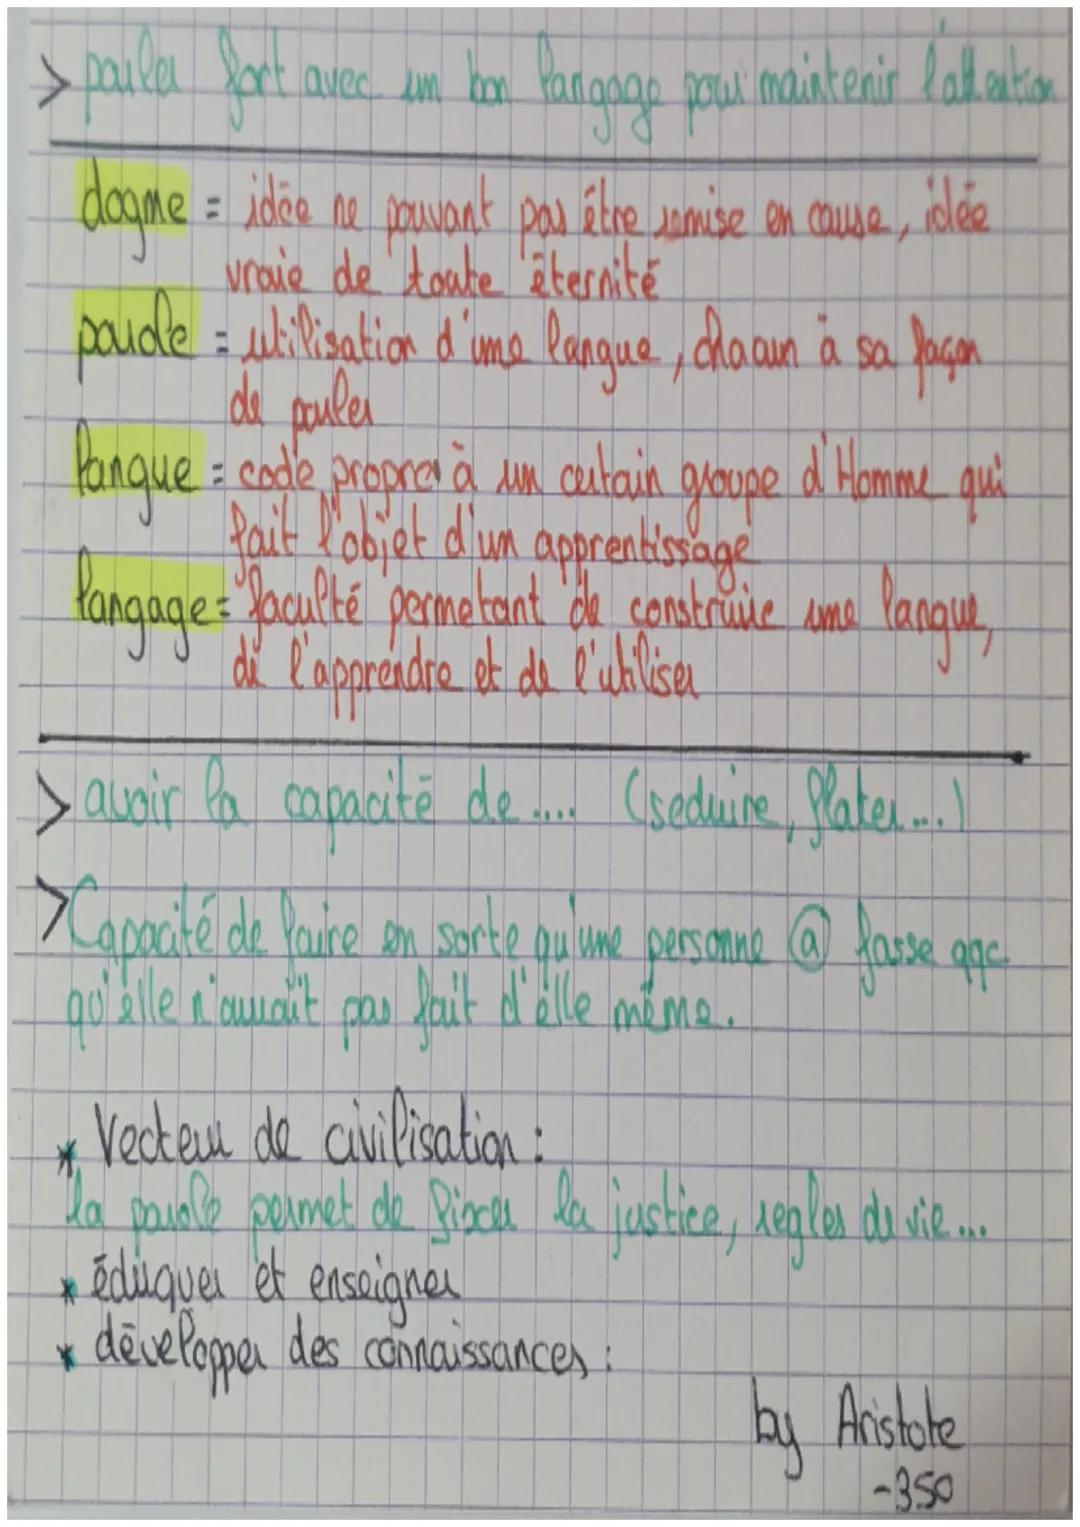 > parler fort avec un bon langage pour maintenir l'attention
dogme = idée ne pouvant pas être remise en cause, idée
vraie de toute éternité
parole = utilisation d'une langue, chacun à sa façon
de parler
langue = code propre à un certain groupe d'Homme qui
fait l'objet d'un apprentissage
langage = faculté permetant de construire une langue,
de l'apprendre et de l'utiliser
> avoir la capacité de .... (seduire, flater...)
> Capacité de faire en sorte qu'une personne @ fasse qqc
qu'elle n'aurait pas fait d'elle même.
* Vecteur de civilisation :
la parole permet de fixer la justice, regles de vie...
* éduquer et enseigner
* développer des connaissances :
by Aristote
-350